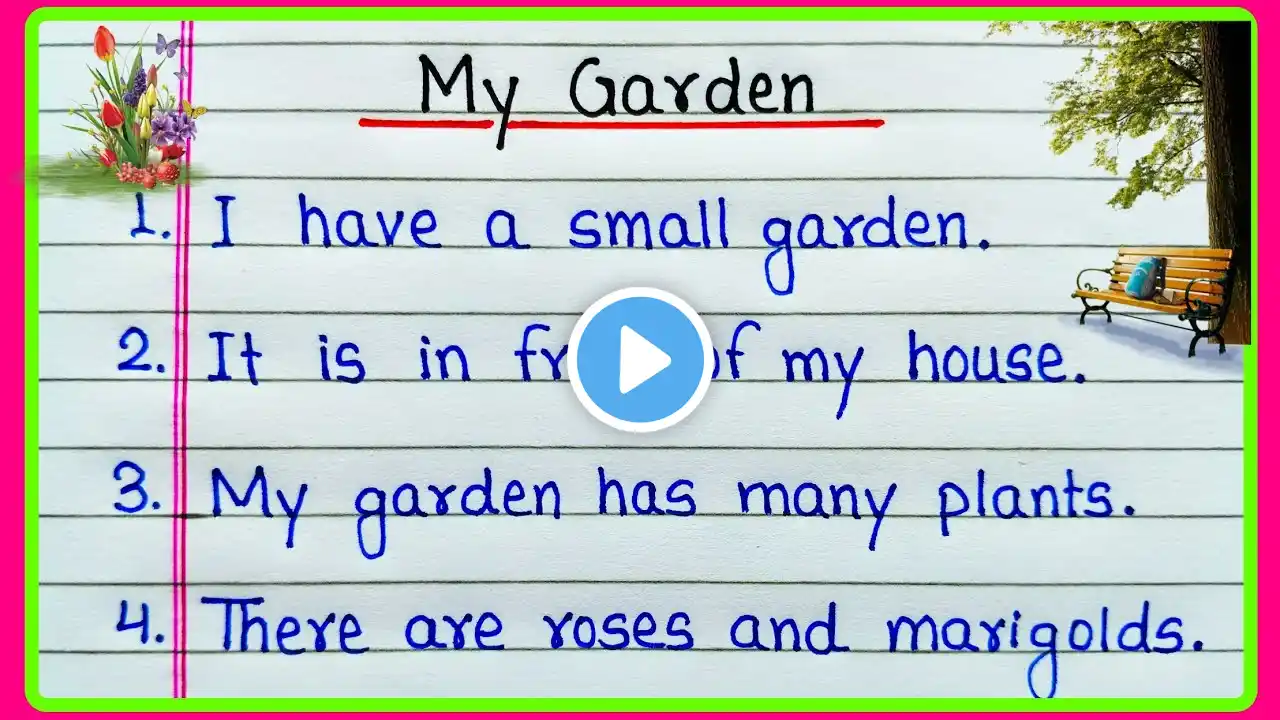 My Garden
1. I have a small garden.
2. It is in of my house.
3. My garden has many plants.
4. There are roses and marigolds.